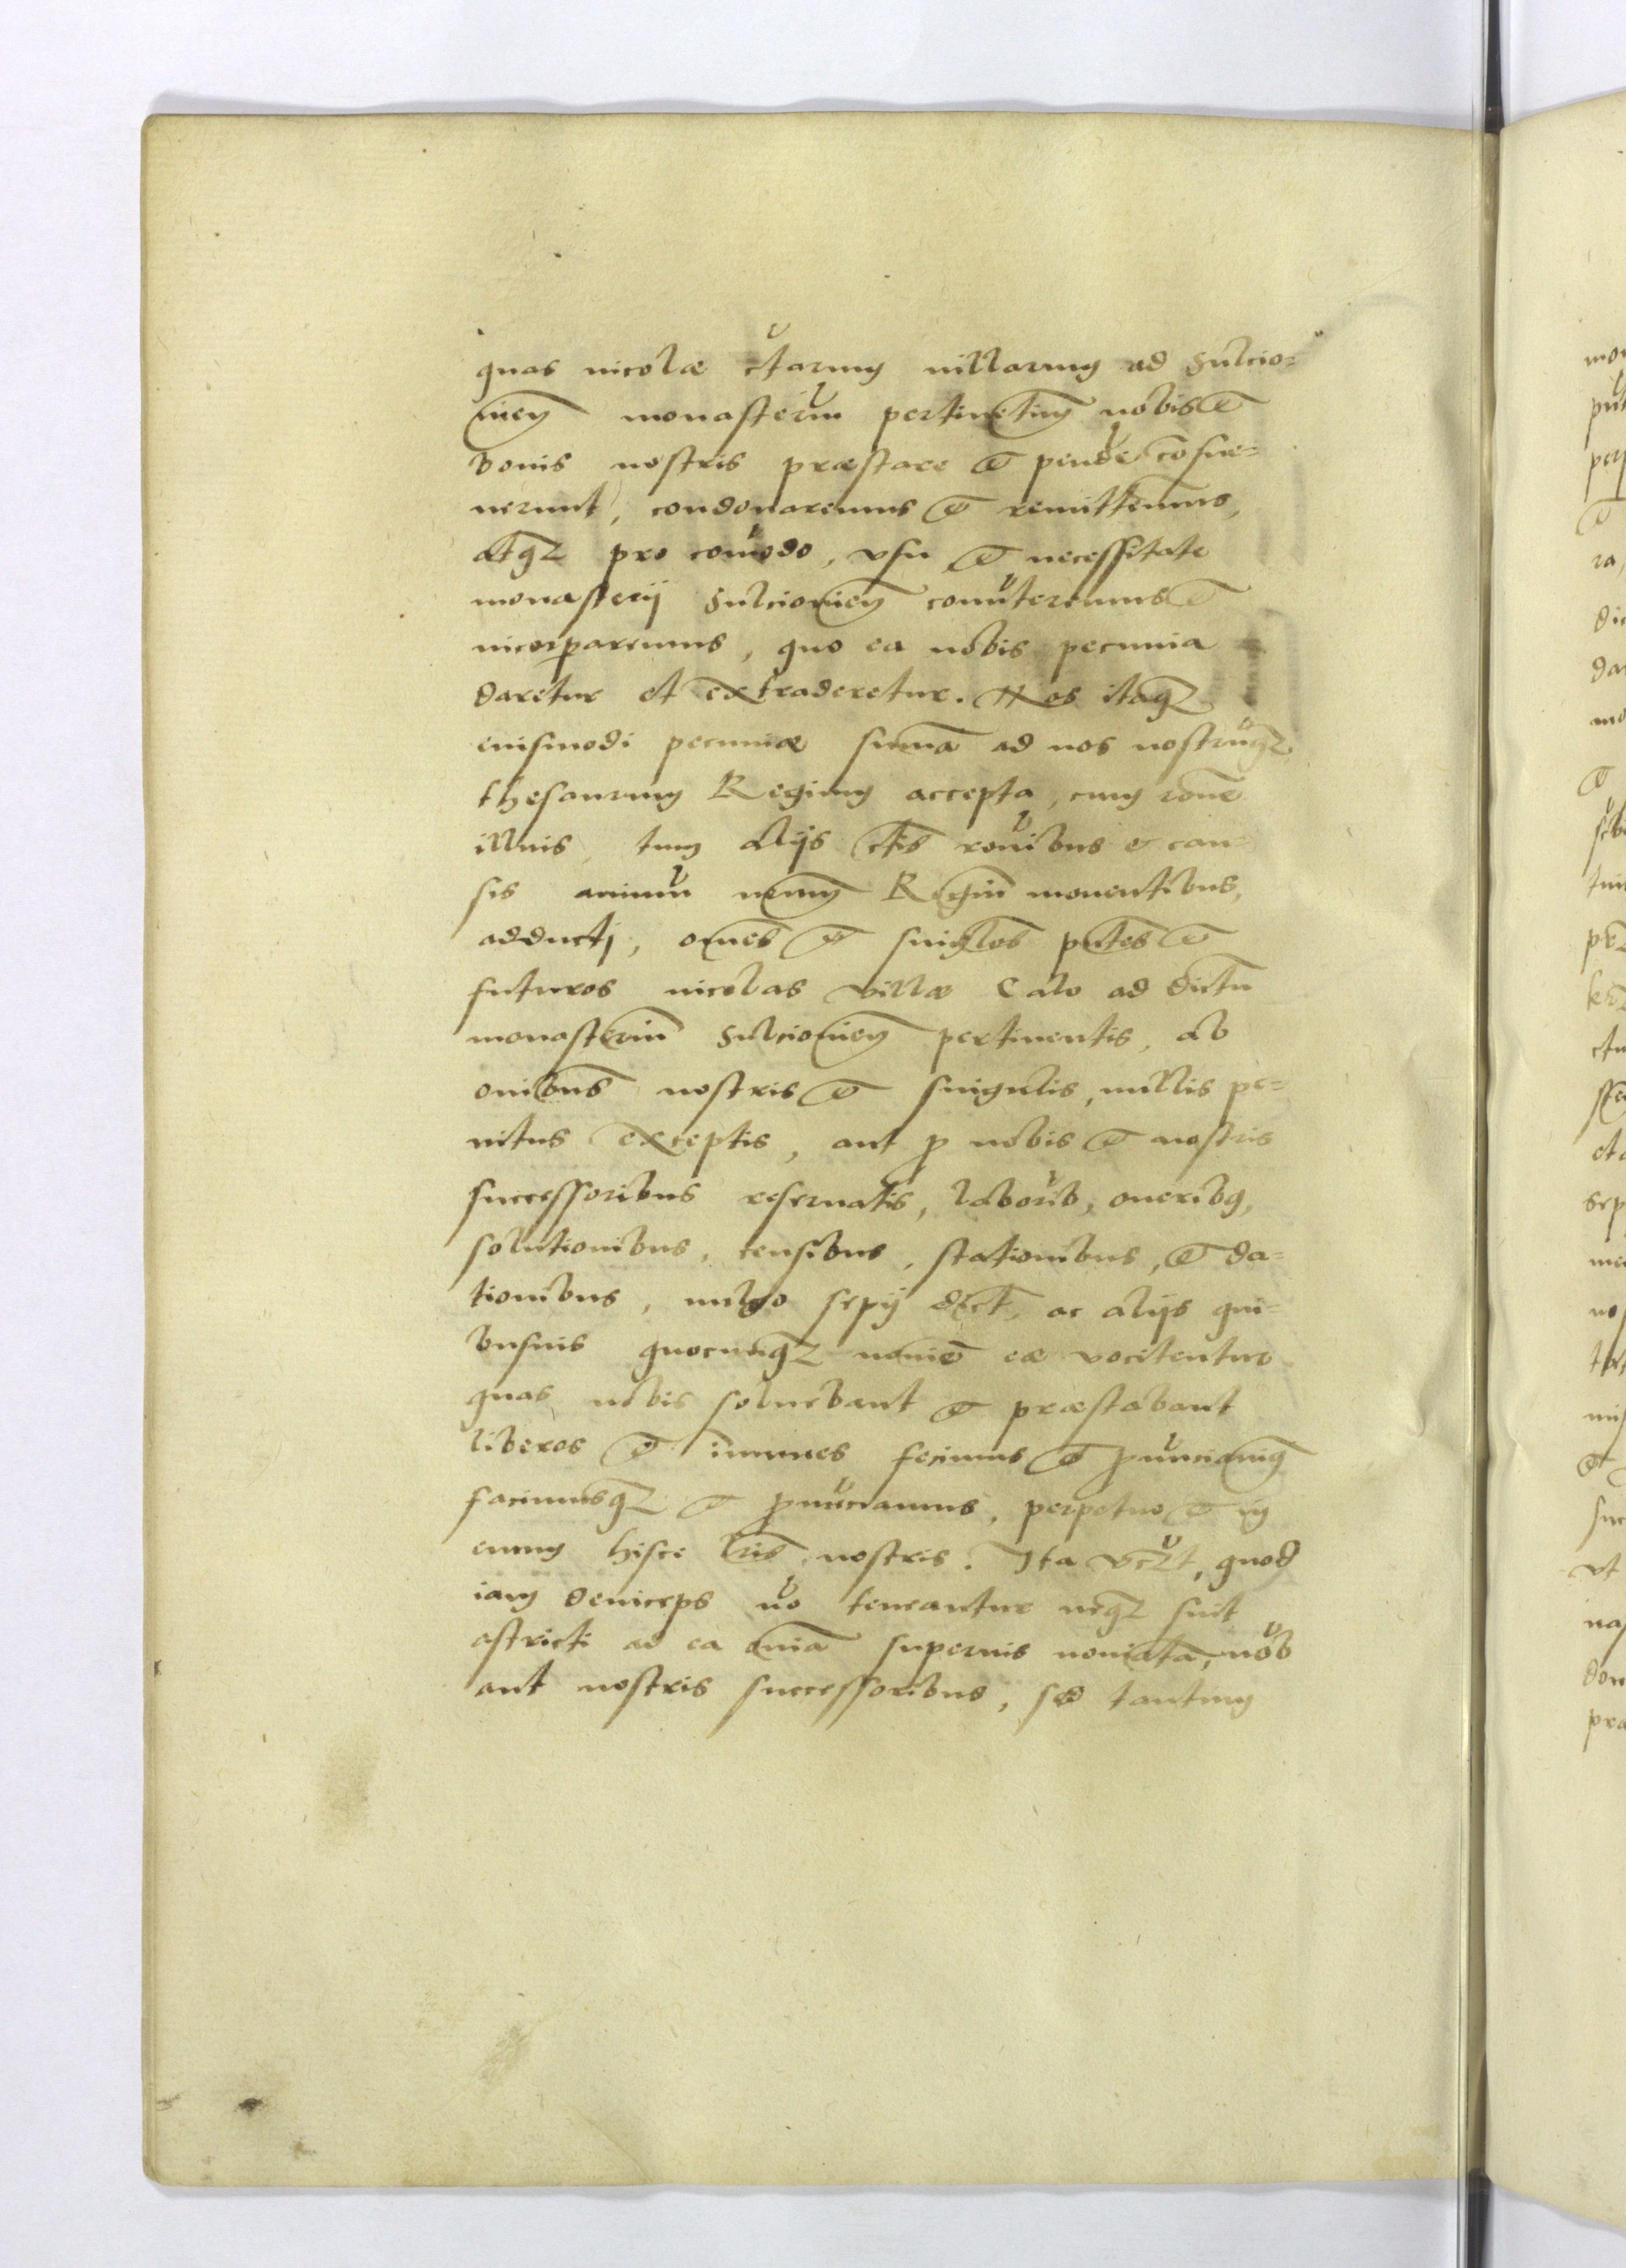 quas incolæ ctarum villarum ad Sulcio=
vień monasteriu pertinētiū nobis et
bonis nostris præstare et pendē cōsue=
uerunt, condonaremus et remitteremus,
atq₃ pro cōmodo, vsu et necessitate
monasterij Sulciovień conuteremus et
incorpparemus, quo ea nobis pecunia
daretur et extraderetur. Nos itaq₃
euismodi pecuniæ suma ad nos nostrūq₃
thesaurum Regium accepta, cum rōne
illius, tum alijs ctis rōnibus et cau=
sis animū nrum Regiū mouentibus,
adducti, omēs et singlos pntes et
futuros incolas villæ Calo ad dictū
monasteriū Sulciovień pertinentis, ab
oībus nostris et singulis, nullis pe=
nitus exceptis, aut p nobis et nostris
successoribus reseruatis, laborib, oneribq,
solutionibus, censibus, stationibus, et da=
tionibus, vulgo sepij dict. ac alijs qui=
busuis quocunq₃ nomīe eæ vocitentur
quas nobis soluebant et præstabant
liberos et īmunes fecimus et pnūciauimq
facimusq₃ et pnūciamus, perpetuo et in
euum hisce lris nostris. Ita vc₃t, quod
iam deinceps nō teneantur neq₃ sint
astricti ad ea omīa superius nomīata, nob
aut nostris successoribus, sed tantum